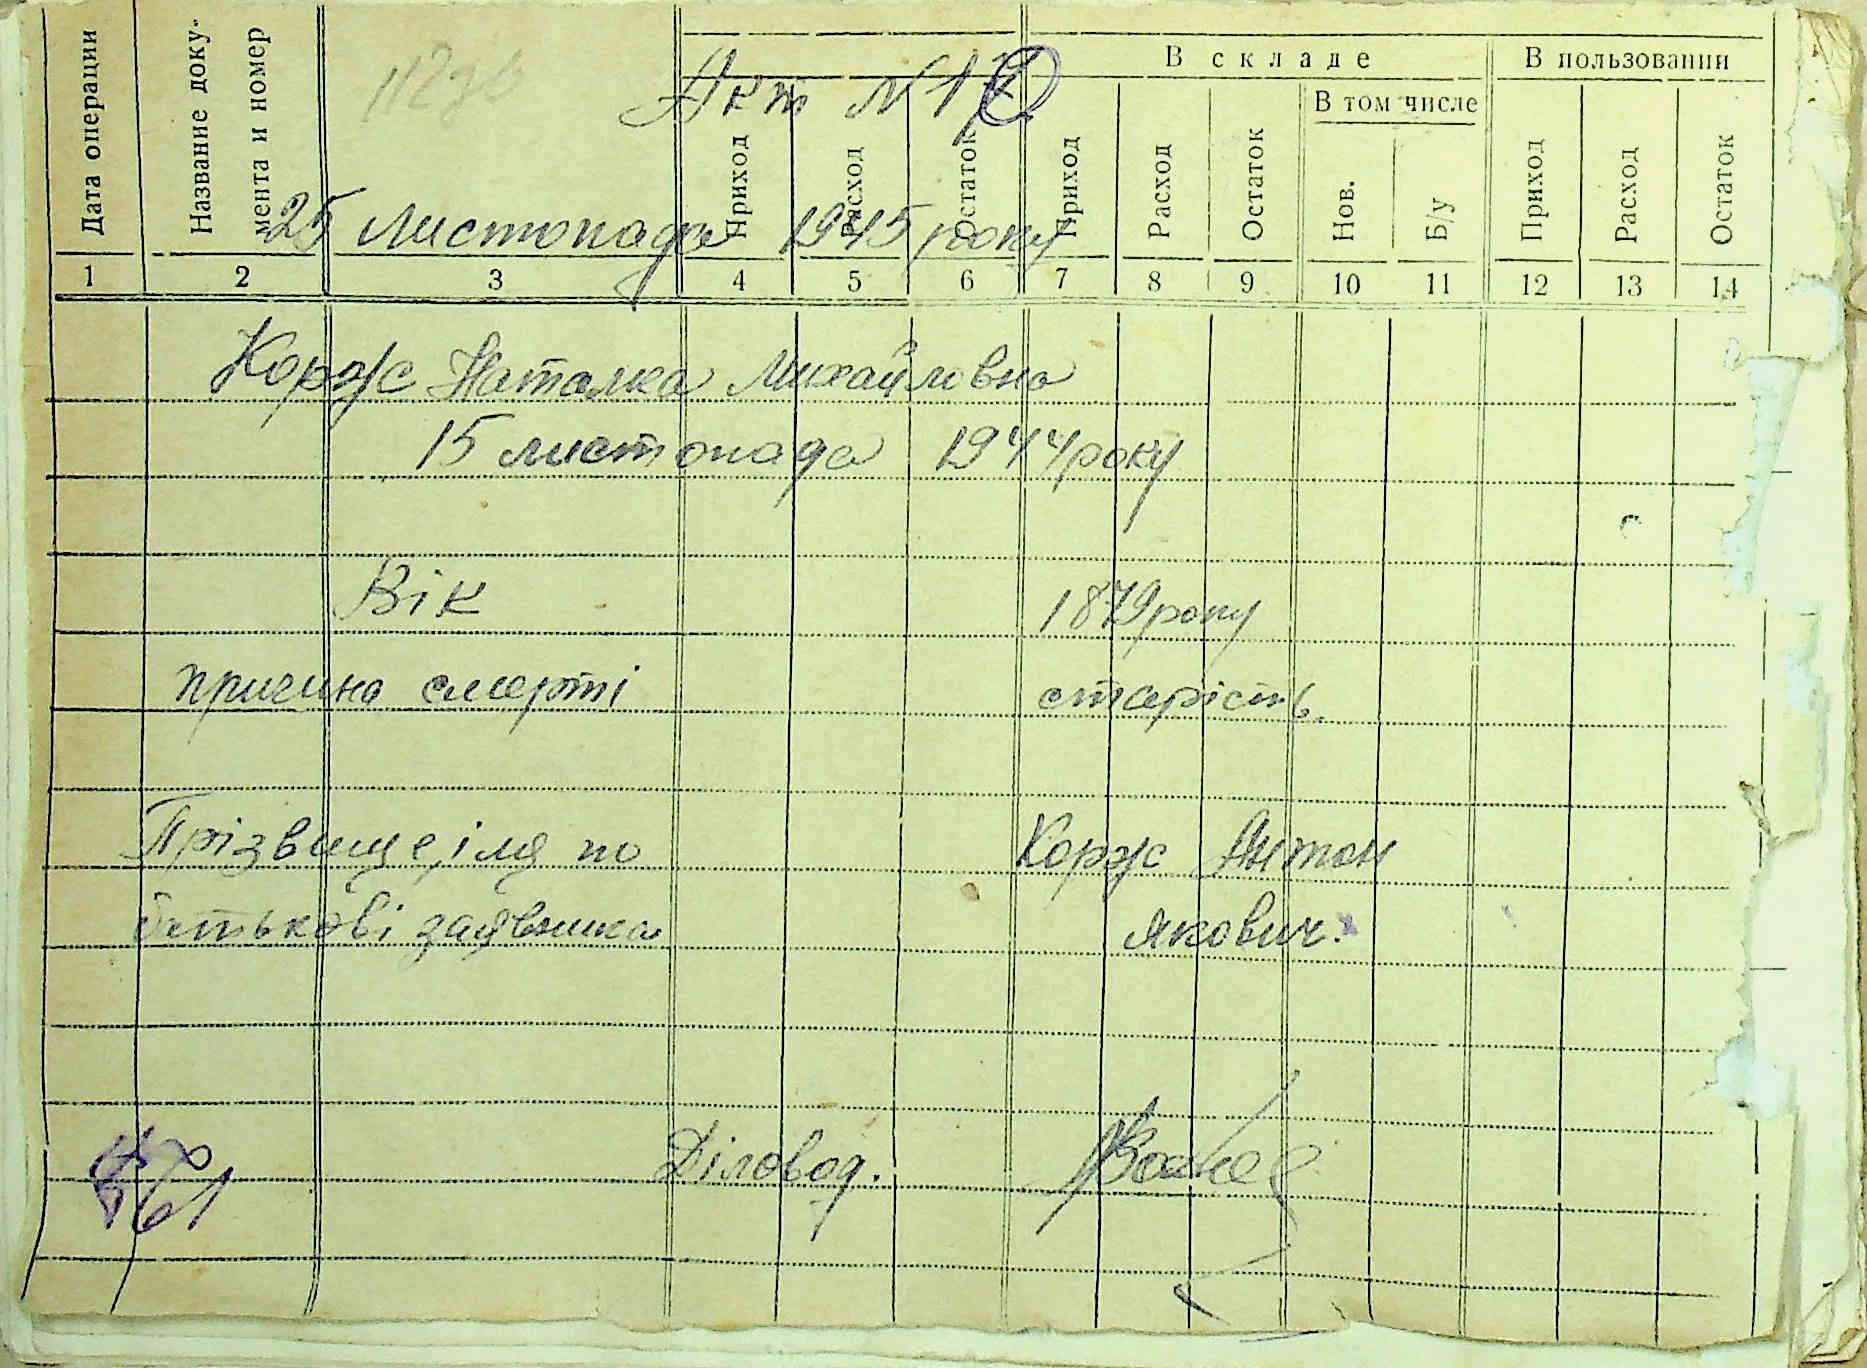 Дата операции
Название доку-
мента и номер
В складе
В пользовании
В том числе
Приход
Расход
Остаток
Приход
Расход
Остаток
Нов.
Б/у
Приход
Расход
Остаток
1 2 3 4 5 6 7 8 9 10 11 12 13 14
Акт N 1
25 листопада 1945 року
Корж Наталка Михайловна
15 листопада 1944 року
Вік 1879 року
причина смерті старість.
Прізвище, імя по Корж Антон
батькові заявника Якович.
Діловод.